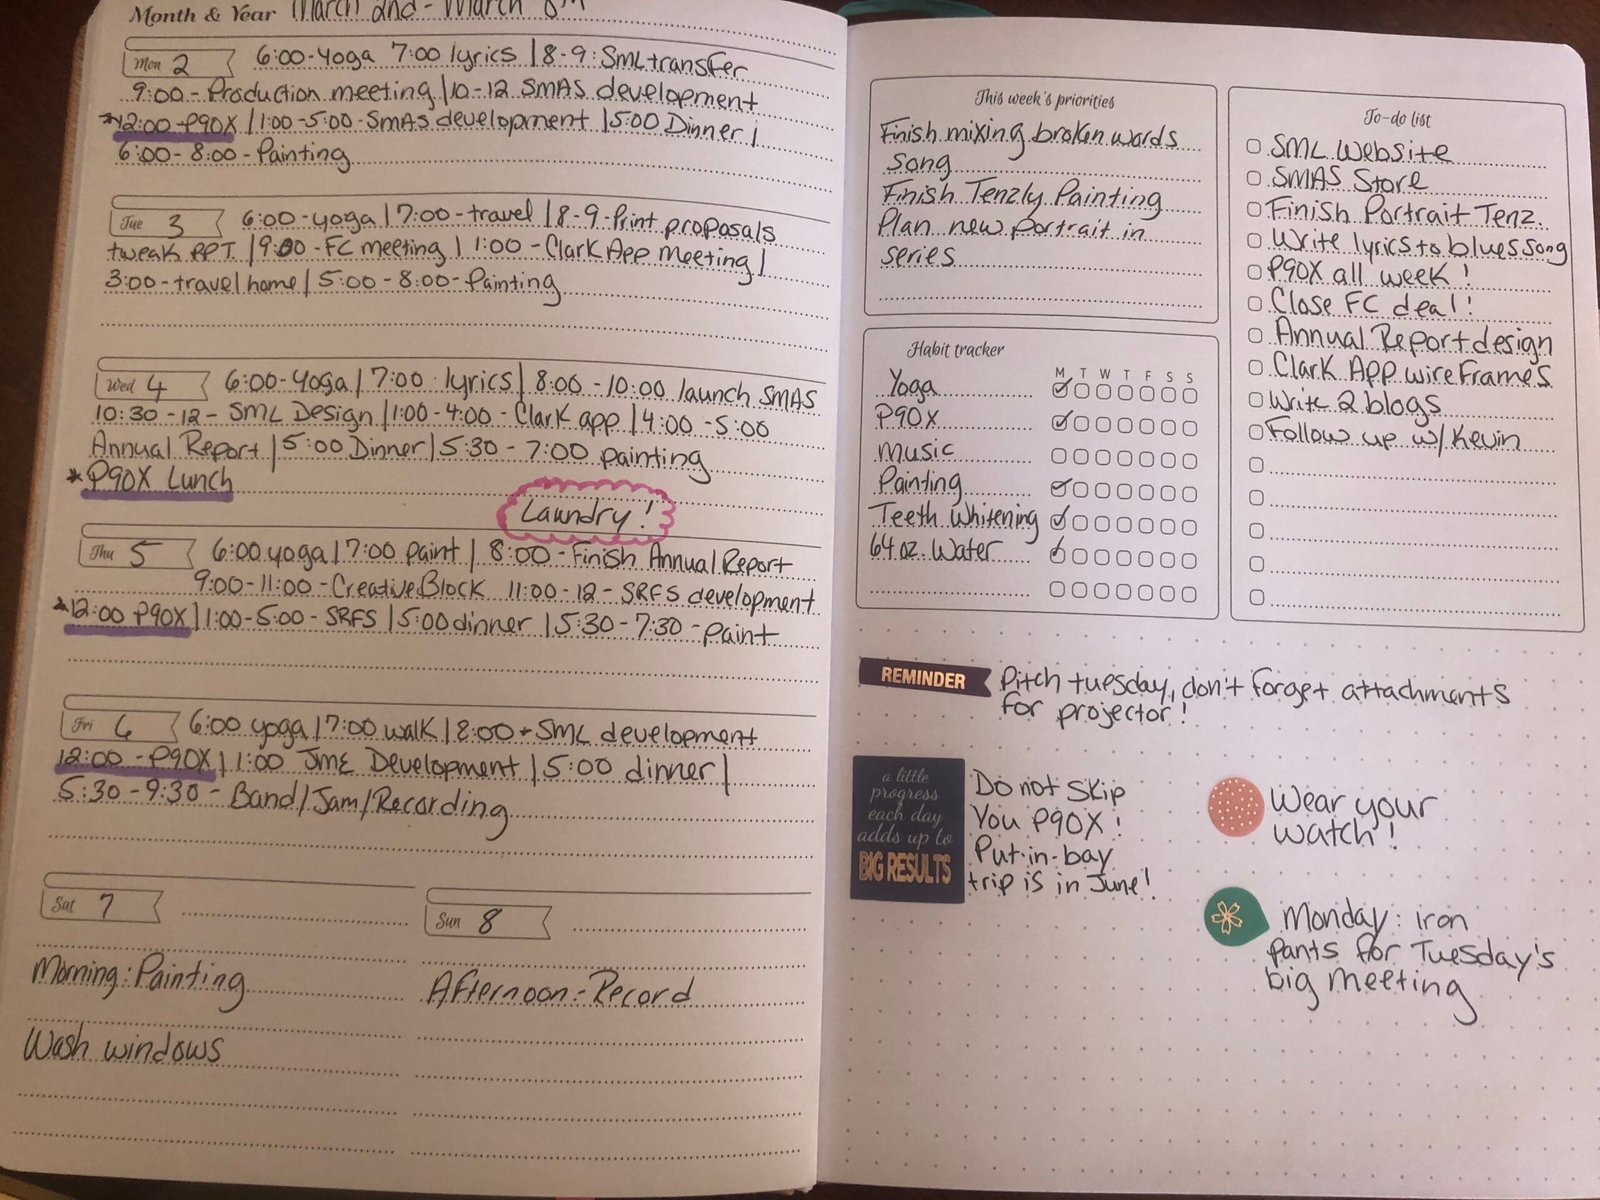 Month & Year March 2nd - March 8th
Mon 2 6:00-Yoga 7:00 lyrics | 8-9: SML transfer
9:00 - Production meeting | 10-12 SMAS development
*12:00-P90X | 1:00-5:00-SMAS development | 5:00 Dinner |
6:00-8:00-Painting
Tue 3 6:00-yoga | 7:00-travel | 8-9-Print proposals
tweak PPT | 9:00 - FC meeting | 1:00 - Clark App Meeting |
3:00-travel home | 5:00-8:00-Painting
Wed 4 6:00-Yoga | 7:00 lyrics | 8:00-10:00 launch SMAS
10:30-12- SML Design | 1:00-4:00-Clark app | 4:00-5:00
Annual Report | 5:00 Dinner | 5:30-7:00 painting
*P90X Lunch
Laundry!
Thu 5 6:00 yoga | 7:00 paint | 8:00-Finish Annual Report
9:00-11:00-CreativeBlock 11:00-12-SRFS development
*12:00 P90X | 1:00-5:00-SRFS | 5:00 dinner | 5:30-7:30-paint
Fri 6 6:00 yoga | 7:00 walk | 8:00-SML development
12:00-P90X | 1:00 JME Development | 5:00 dinner |
5:30-9:30-Band/Jam/Recording
Sat 7
Morning: Painting
Wash windows
Sun 8
Afternoon-Record
This week's priorities
Finish mixing broken words
song
Finish Tenzly Painting
Plan new portrait in
series
Habit tracker
M T W T F S S
Yoga
P90X
Music
Painting
Teeth Whitening
64oz. Water
To-do list
SML Website
SMAS Store
Finish Portrait Tenz.
Write lyrics to blues song
P90X all week!
Close FC deal!
Annual Report design
Clark App wireframes
Write 2 blogs
Follow up w/ Kevin
REMINDER Pitch tuesday, don't forget attachments
for projector!
a little
progress
each day
adds up to
BIG RESULTS
Do not Skip
You P90X!
Put-in-bay
trip is in June!
Wear your
watch!
Monday: iron
pants for Tuesday's
big meeting